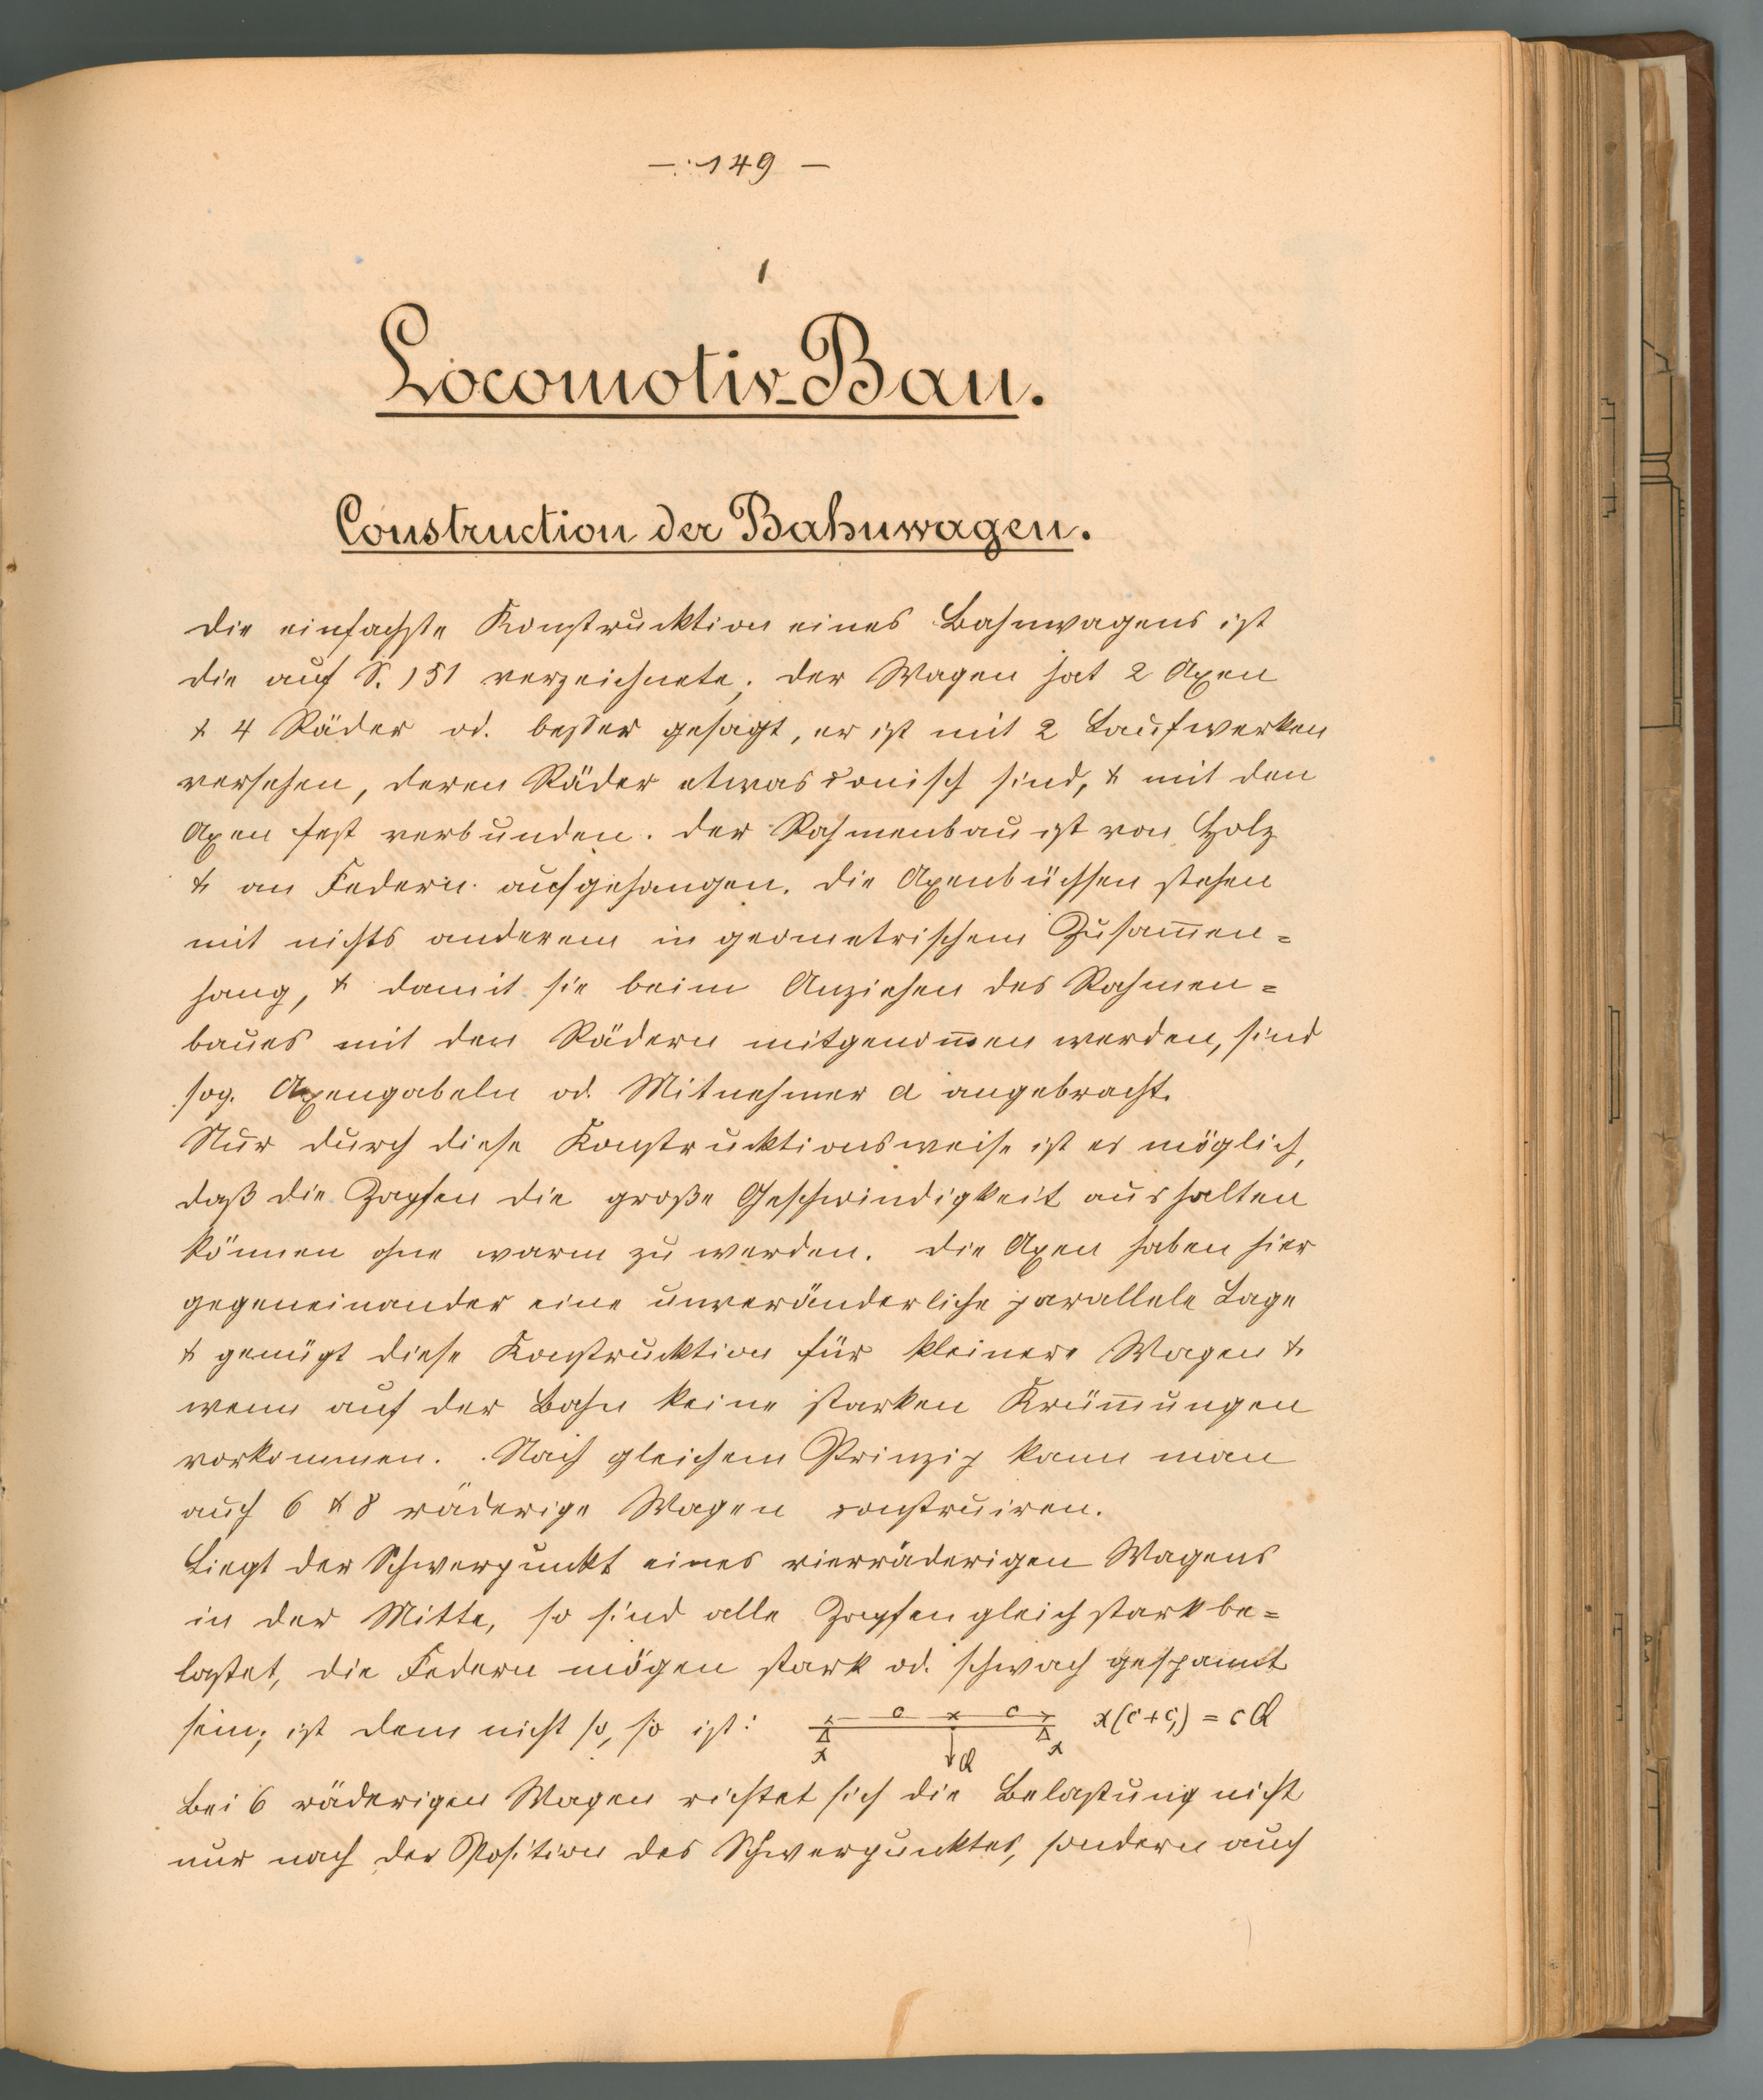 —: 149 —
1
Locomotiv-Bau.
Construction der Bahnwagen.
Die einfachste Konstrucktion eines Bahnwagens ist
die auf S. 151 verzeichnete; der Wagen hat 2 Axen
& 4 Räder od. besser gesagt, er ist mit 2 Laufwerken
versehen, deren Räder etwas conisch sind, & mit den
Axen fest verbunden. Der Rahmenbau ist von Holz
& an Federn aufgehangen. Die Axenbüchsen stehen
mit nichts anderem in geometrischem Zusam̅en=
hang, & damit sie beim Anziehen des Rahmen=
baues mit den Rädern mitgenom̅en werden, sind
sog. Axengabeln od. Mitnehmer a angebracht.
Nur durch diese Konstrucktionsweise ist es möglich,
daß die Zapfen die große Geschwindigkeit aushalten
können ohne warm zu werden. Die Axen haben hier
gegeneinander eine unveränderliche parallele Lage
& genügt diese Konstrucktion für kleinere Wagen &
wenn auf der Bahn keine starken Krüm̅ungen
vorkommen. Nach gleichem Prinzip kann man
auch 6 & 8 räderige Wagen construiren.
Liegt der Schwerpunkt eines vierräderigen Wagens
in der Mitte, so sind alle Zapfen gleich stark be=
lastet, die Federn mögen stark od. schwach gespannt
sein; ist dem nicht so, so ist: c c x(c+c,) = cQ
x Q x
Bei 6 räderigen Wagen richtet sich die Belastung nicht
nur nach der Position des Schwerpunktes, sondern auch